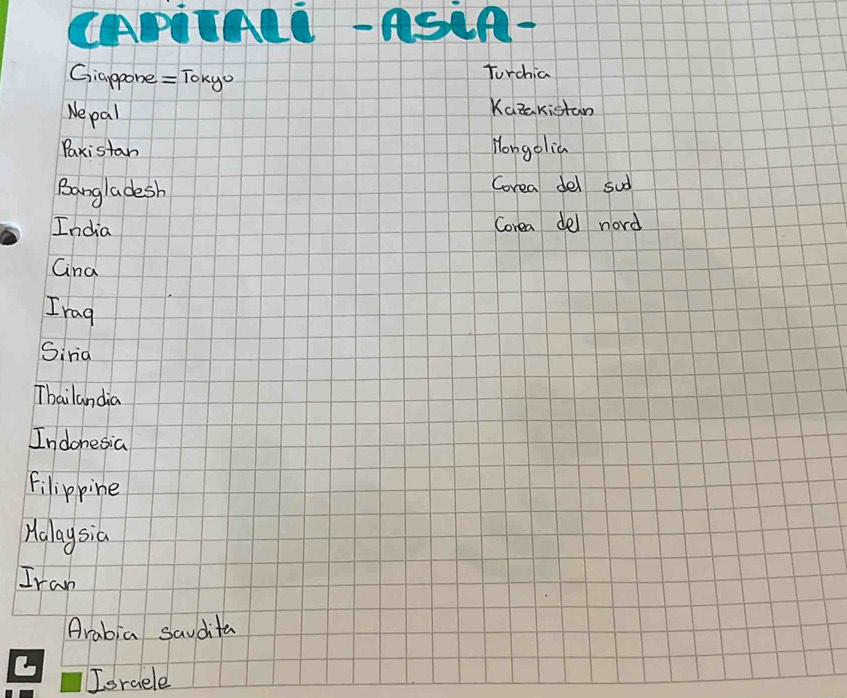 CAPiTALi - ASiA -
Giappone = Tokyo
Nepal
Pakistan
Bangladesh
India
Cina
Iraq
Siria
Thailandia
Indonesia
Filippine
Malaysia
Iran
Arabia saudita
Israele
Turchia
Kazakistan
Mongolia
Corea del sud
Corea del nord